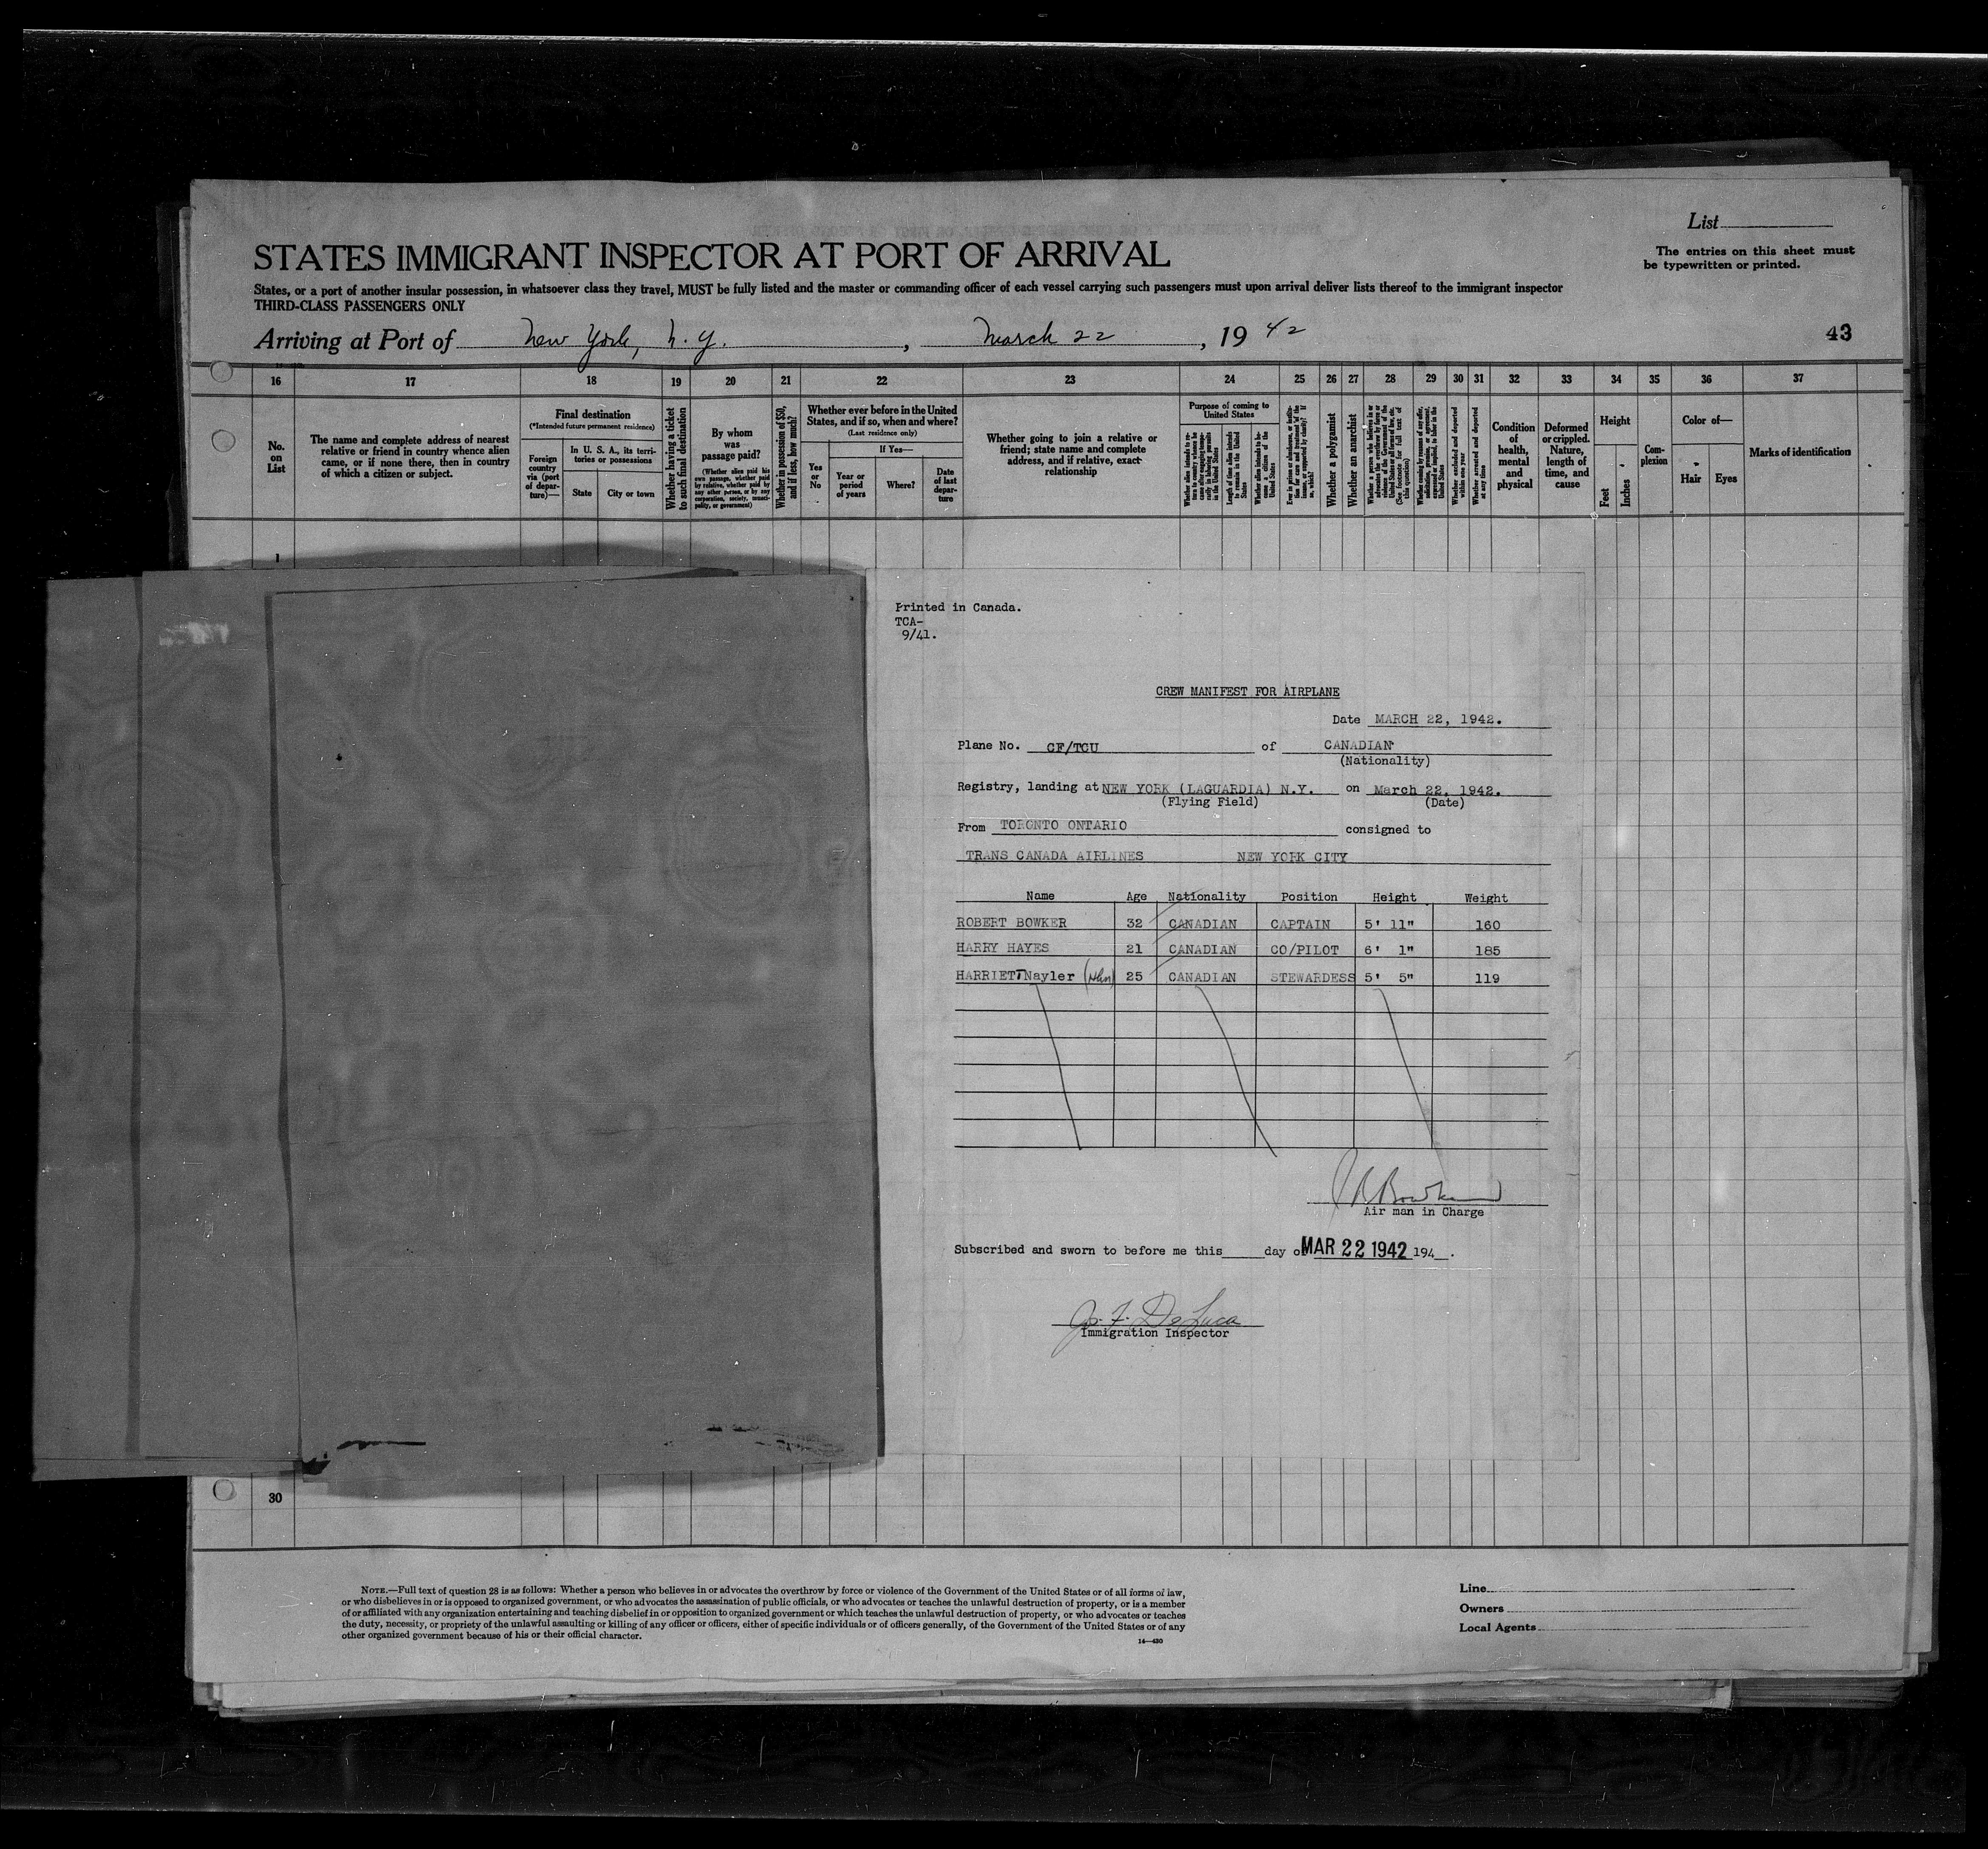 List
STATES IMMIGRANT INSPECTOR AT PORT OF ARRIVAL
The entries on this sheet must
be typewritten or printed.
States, or a port of another insular possession, in whatsoever class they travel, MUST be fully listed and the master or commanding officer of each vessel carrying such passengers must upon arrival deliver lists thereof to the immigrant inspector
THIRD-CLASS PASSENGERS ONLY
Arriving at Port of New York, N. Y. , March 22 , 19 42
43
16 17 18 19 20 21 22 23 24 25 26 27 28 29 30 31 32 33 34 35 36 37
No.
on
List
The name and complete address of nearest
relative or friend in country whence alien
came, or if none there, then in country
of which a citizen or subject.
Final destination
(*Intended future permanent residence)
Foreign
country
via (port
of depar-
ture)—
In U. S. A., its terri-
tories or possessions
State
City or town
Whether having a ticket
to such final destination
By whom
was
passage paid?
(Whether alien paid his
own passage, whether paid
by relative, whether paid by
any other person, or by any
corporation, society, munici-
pality, or government)
Whether in possession of $50,
and if less, how much?
Whether ever before in the United
States, and if so, when and where?
(Last residence only)
Yes
or
No
If Yes—
Year or
period
of years
Where?
Date
of last
depar-
ture
Whether going to join a relative or
friend; state name and complete
address, and if relative, exact
relationship
Purpose of coming to
United States
Length of time alien intends
to remain in the United
States
Whether alien intends to be-
come a citizen of the
United States
Whether a polygamist
Whether an anarchist
Whether excluded and deported
within one year
Whether arrested and deported
at any time
Condition
of
health,
mental
and
physical
Deformed
or crippled.
Nature,
length of
time, and
cause
Height
Feet
Inches
Com-
plexion
Color of—
Hair
Eyes
Marks of identification
1
Printed in Canada.
TCA-
9/41.
CREW MANIFEST FOR AIRPLANE
Date MARCH 22, 1942.
Plane No. CF/TCU of CANADIAN
(Nationality)
Registry, landing at NEW YORK (LAGUARDIA) N.Y. on March 22, 1942.
(Flying Field) (Date)
From TORONTO ONTARIO consigned to
TRANS CANADA AIRLINES NEW YORK CITY
Name Age Nationality Position Height Weight
ROBERT BOWKER 32 CANADIAN CAPTAIN 5' 11" 160
HARRY HAYES 21 CANADIAN CO/PILOT 6' 1" 185
HARRIET Nayler 25 CANADIAN STEWARDESS 5' 5" 119
J R Bowker
Air man in Charge
Subscribed and sworn to before me this day of MAR 22 1942 194 .
Jos. F. De Luca
Immigration Inspector
30
NOTE.—Full text of question 28 is as follows: Whether a person who believes in or advocates the overthrow by force or violence of the Government of the United States or of all forms of law,
or who disbelieves in or is opposed to organized government, or who advocates the assassination of public officials, or who advocates or teaches the unlawful destruction of property, or is a member
of or affiliated with any organization entertaining and teaching disbelief in or opposition to organized government or which teaches the unlawful destruction of property, or who advocates or teaches
the duty, necessity, or propriety of the unlawful assaulting or killing of any officer or officers, either of specific individuals or of officers generally, of the Government of the United States or of any
other organized government because of his or their official character.
14—430
Line
Owners
Local Agents